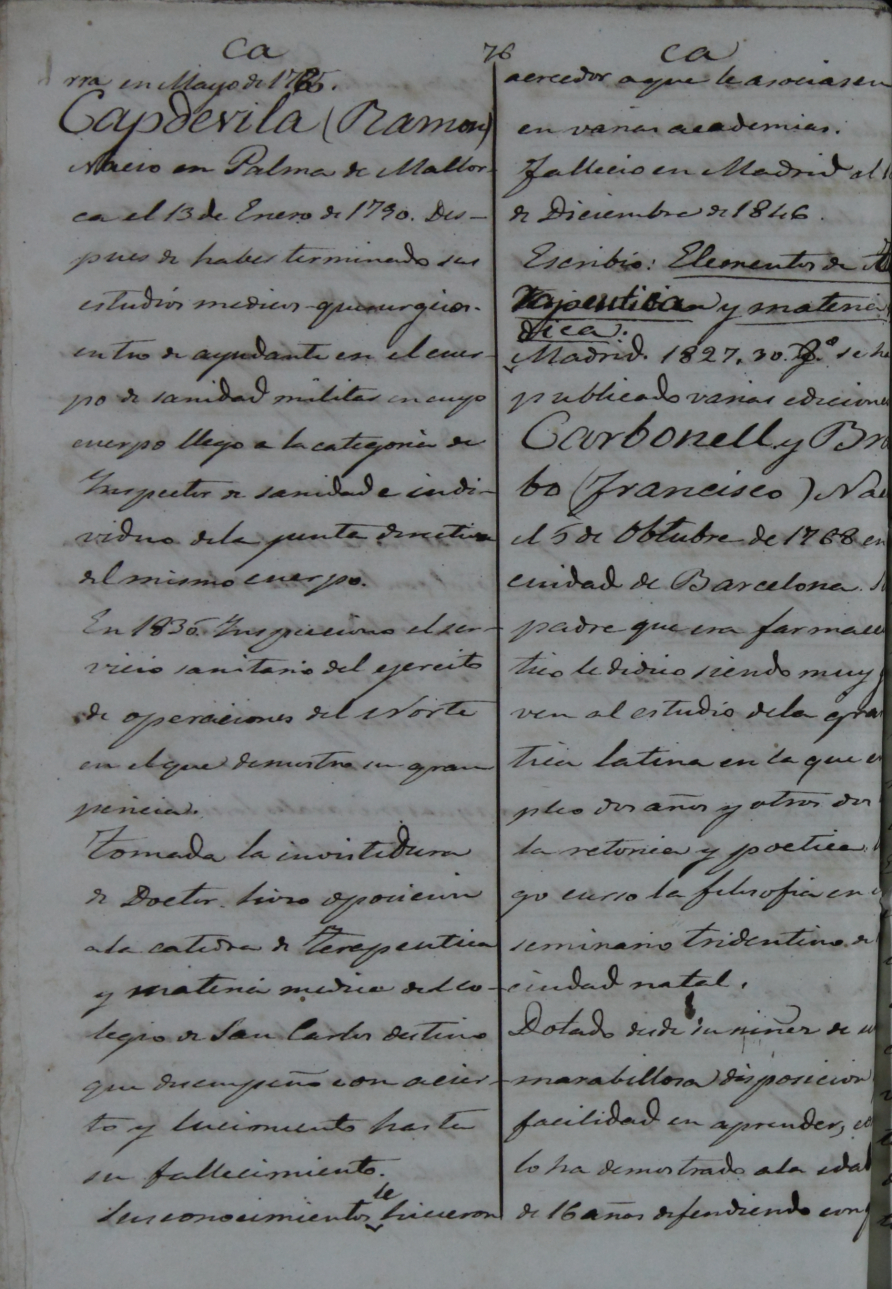 Ca
76
Ca
rra en Mayo de 1785.
Capdevila (Ramon)
Nacio en Palma de Mallor-
ca el 13 de Enero de 1790. Des-
pues de haber terminado sus
estudios medicos-quirurgicos.
entro de ayudante en el cuer-
po de sanidad militar en cuyo
cuerpo llego a la categoria de
Inspector de sanidad e indi-
viduo de la junta directiva
del mismo cuerpo.
En 1835 Inspecciono el ser-
vicio sanitario del ejercito
de operaciones del Norte
en el que demostro su gran
pericia.
Tomada la investidura
de Doctor. hizo oposicion
a la catedra de Terepeutica
y materia medica del co-
legio de San Carlos destino
que desempeño con acier-
to y lucimiento hasta
su fallecimiento.
Sus conocimientos le hicieron
acreedor a que le asociasen
en varias academias.
Fallecio en Madrid el
de Diciembre de 1846.
Escribio: Elementos de
rapeutica y materia
dica.
Madrid. 1827. 30. se ha
publicado varias edicione
Carbonell y Bra
bo (Francisco) Nac
el 5 de Obtubre de 1768 en
ciudad de Barcelona.
padre que era farmaceu
tico le dedico siendo muy
ven al estudio de la gra
tica latina en la que e
pleo dos años y otros dos
la retorica y poetica.
go curso la filosofia en
seminario tridentino de
ciudad natal.
Dotado desde su niñez de
marabillosa disposicion
facilidad en aprender,
lo ha demostrado a la edad
de 16 años defendiendo con